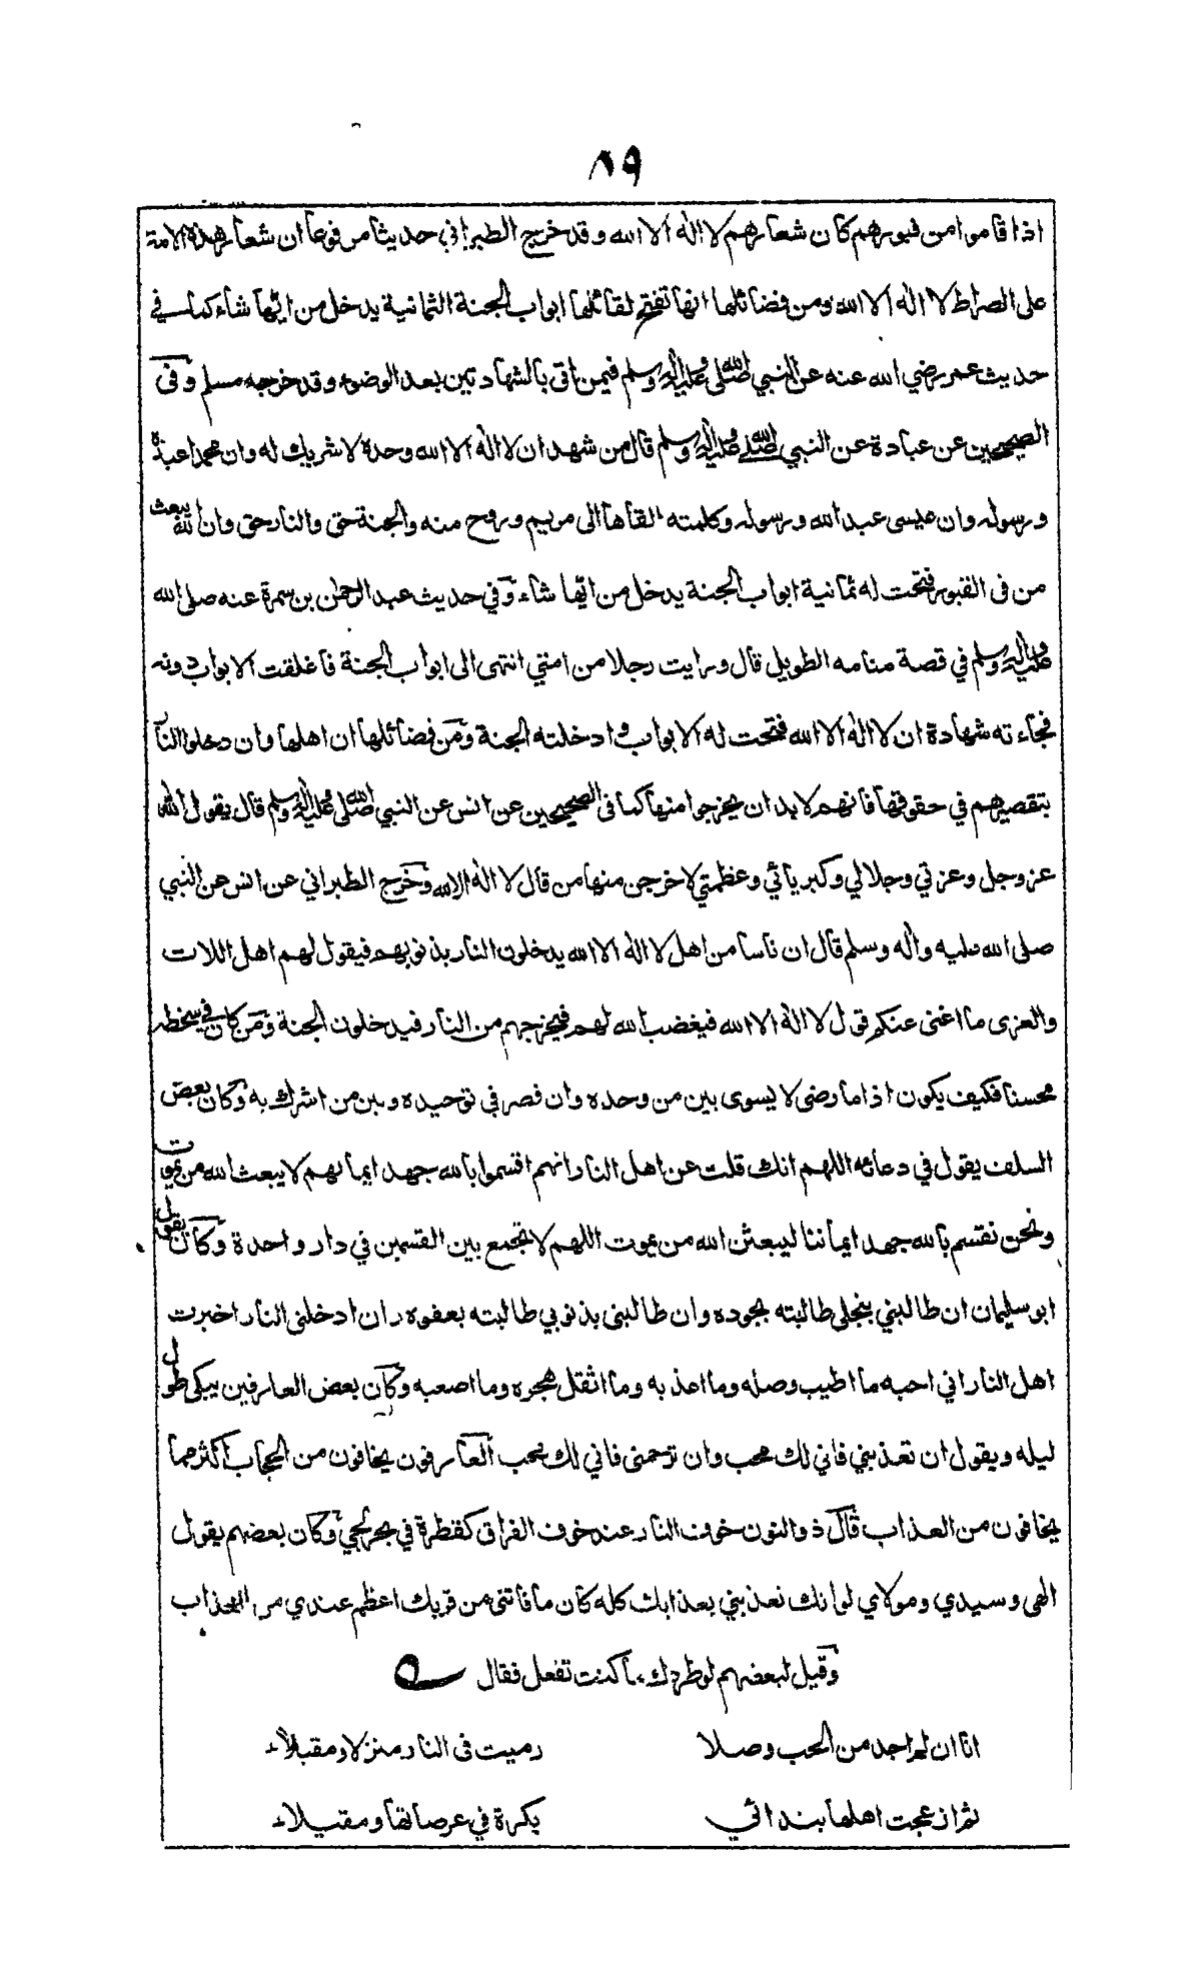 ٨٩
اذا قاموا من قبورهم كان شعارهم لا اله الا الله وقد خرج الطبراني حديثا مرفوعا ان شعار هذه الامة
على الصراط لا اله الا الله ومن فضائلها انها تفتح لقائلها ابواب الجنة الثمانية يدخل من ايها شاء كما في
حديث عمر رضي الله عنه عن النبي صلى الله عليه وآله وسلم فيمن اتى بالشهادتين بعد الوضوء وقد خرجه مسلم وفى
الصحيحين عن عبادة عن النبي صلى الله عليه وآله وسلم قال من شهد ان لا اله الا الله وحده لا شريك له وان محمدا عبده
ورسوله وان عيسى عبد الله ورسوله وكلمته القاها الى مريم وروح منه والجنة حق والنار حق وان الله يبعث
من فى القبور فتحت له ثمانية ابواب الجنة يدخل من ايها شاء وفي حديث عبد الرحمن بن سمرة عنه صلى الله
عليه وآله وسلم في قصة منامه الطويل قال ورايت رجلا من امتي انتهى الى ابواب الجنة فاغلقت الابواب دونه
فجاءته شهادة ان لا اله الا الله ففتحت له الابواب وادخلته الجنة ومن فضائلها ان اهلها وان دخلوا النار
بتقصيرهم في حقوقها فانهم لا بد ان يخرجوا منها كما فى الصحيحين عن انس عن النبي صلى الله عليه وآله وسلم قال يقول الله
عز وجل وعزتي وجلالي وكبريائي وعظمتي لاخرجن منها من قال لا اله الا الله وخرج الطبراني عن انس عن النبي
صلى الله عليه وآله وسلم قال ان ناسا من اهل لا اله الا الله يدخلون النار بذنوبهم فيقول لهم اهل اللات
والعزى ما اغنى عنكم قول لا اله الا الله فيغضب الله لهم فيخرجهم من النار فيدخلون الجنة ومن كان في سخطه
محسنا فكيف يكون اذا ما رضى لا يسوى بين من وحده وان قصر في توحيده وبين من اشرك به وكان بعض
السلف يقول في دعائه اللهم انك قلت عن اهل النار انهم اقسموا بالله جهد ايمانهم لا يبعث الله من يموت
ونحن نقسم بالله جهد ايماننا ليبعثن الله من يموت اللهم لا تجمع بين القسمين في دار واحدة وكان يقول
ابو سليمان ان طالبني ببخلى طالبته بجوده وان طالبنى بذنوبي طالبته بعفوه وان ادخلنى النار اخبرت
اهل النار اني احبه ما اطيب وصله وما اعذبه وما اثقل هجره وما اصعبه وكان بعض العارفين يبكى طول
ليله ويقول ان تعذبني فاني لك محب وان ترحمنى فاني لك محب العارفون يخافون من الحجاب اكثر مما
يخافون من العذاب قال ذو النون خوف النار عند خوف الفراق كقطرة في بحر لجي وكان بعضهم يقول
الهى وسيدي ومولاي لو انك تعذبني بعذابك كله كان ما فاتنى من قربك اعظم عندي من العذاب
وقيل لبعضهم لو طردك ما كنت تفعل فقال
انا ان لم اجد من الحب وصلا رميت فى النار منزلا ومقبلاء
ثم ازعجت اهلها بندائي بكرة في عرصاتها ومقيلاء